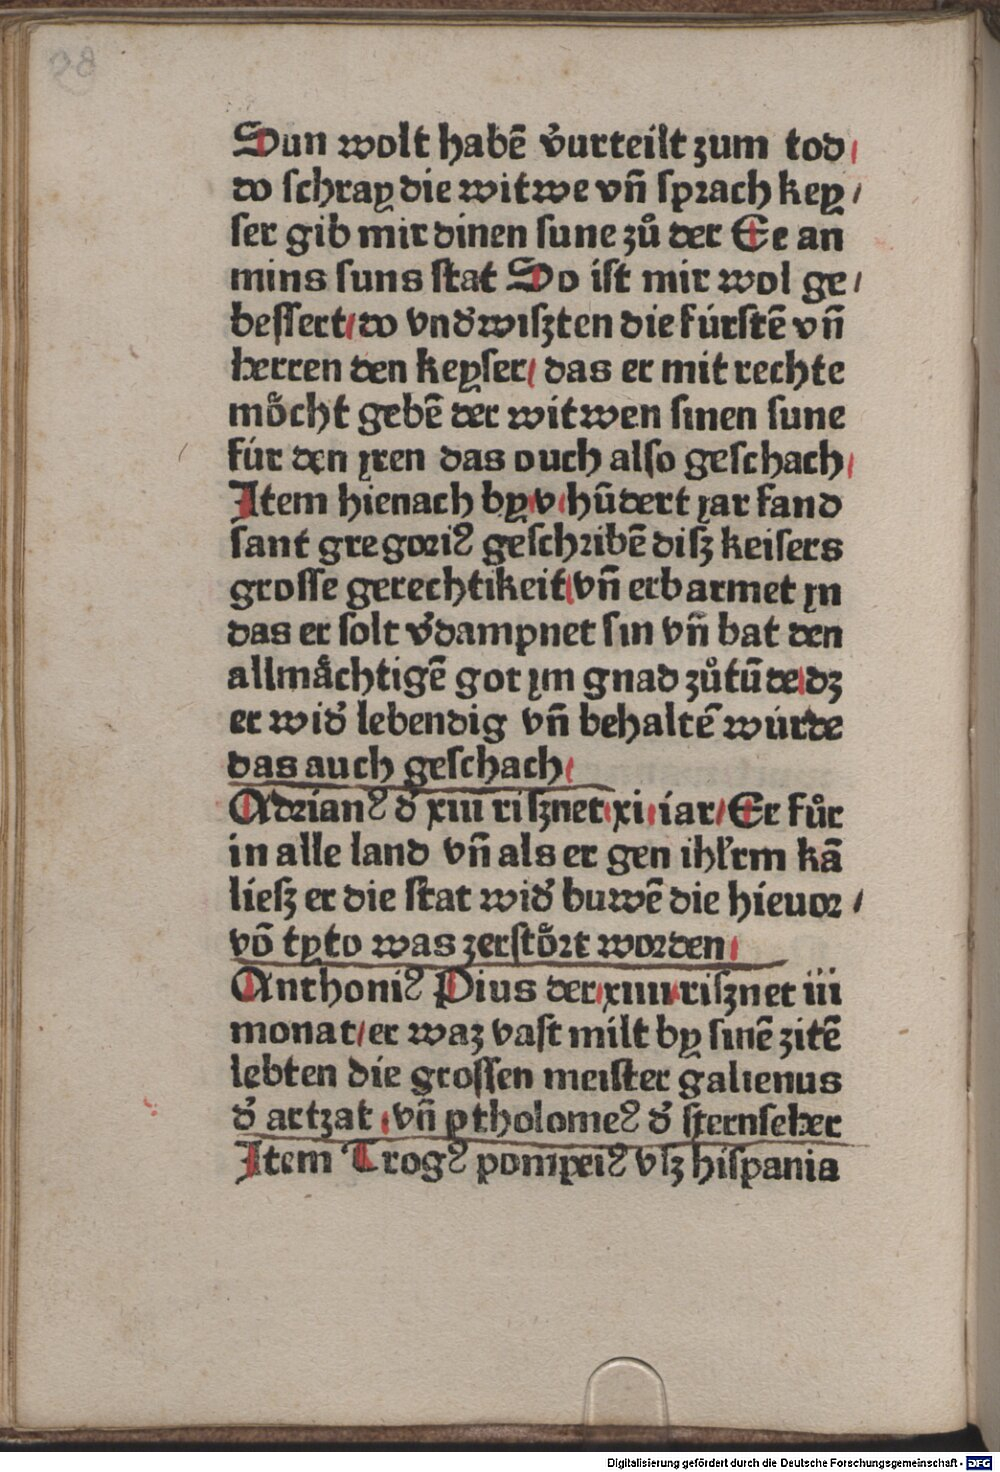 28
Sun wolt habē v̉urteilt zum tod/
do schray die witwe vn̄ sprach key/
ser gib mir dinen sune zů der Ee an
mins suns stat So ist mir wol ge/
bessert/do vnd̉wiszten die fúrstē vn̄
herren den keyser/ das er mit rechte
mo̊cht gebē der witwen sinen sune
fúr den yren das ouch also geschach/
Item hienach by·v·hūdert yar fand
sant gregoriꝰ geschribē disz keisers
grosse gerechtikeit/vn̄ erbarmet yn
das er solt v̉dampnet sin vn̄ bat den
allmåchtigē got ym gnad zůtūde/dz
er wid̉ lebendig vn̄ behaltē wúrde
das auch geschach/
Adrianꝰ d̉ xiii risznet·xi·iar/Er fůr
in alle land vn̄ als er gen ihl̉rm kā
liesz er die stat wid̉ buwē die hieuor/
vō tyto was zersto̊rt worden/
Anthoniꝰ Pius der·xiiii·risznet iii
monat/er waz vast milt by sinē zitē
lebten die grossen meister galienus
d̉ artzat·vn̄ ptholomeꝰ d̉ sternseher
Item Trogꝰ pompeiꝰ vsz hispania
Digitalisierung gefördert durch die Deutsche Forschungsgemeinschaft - DFG